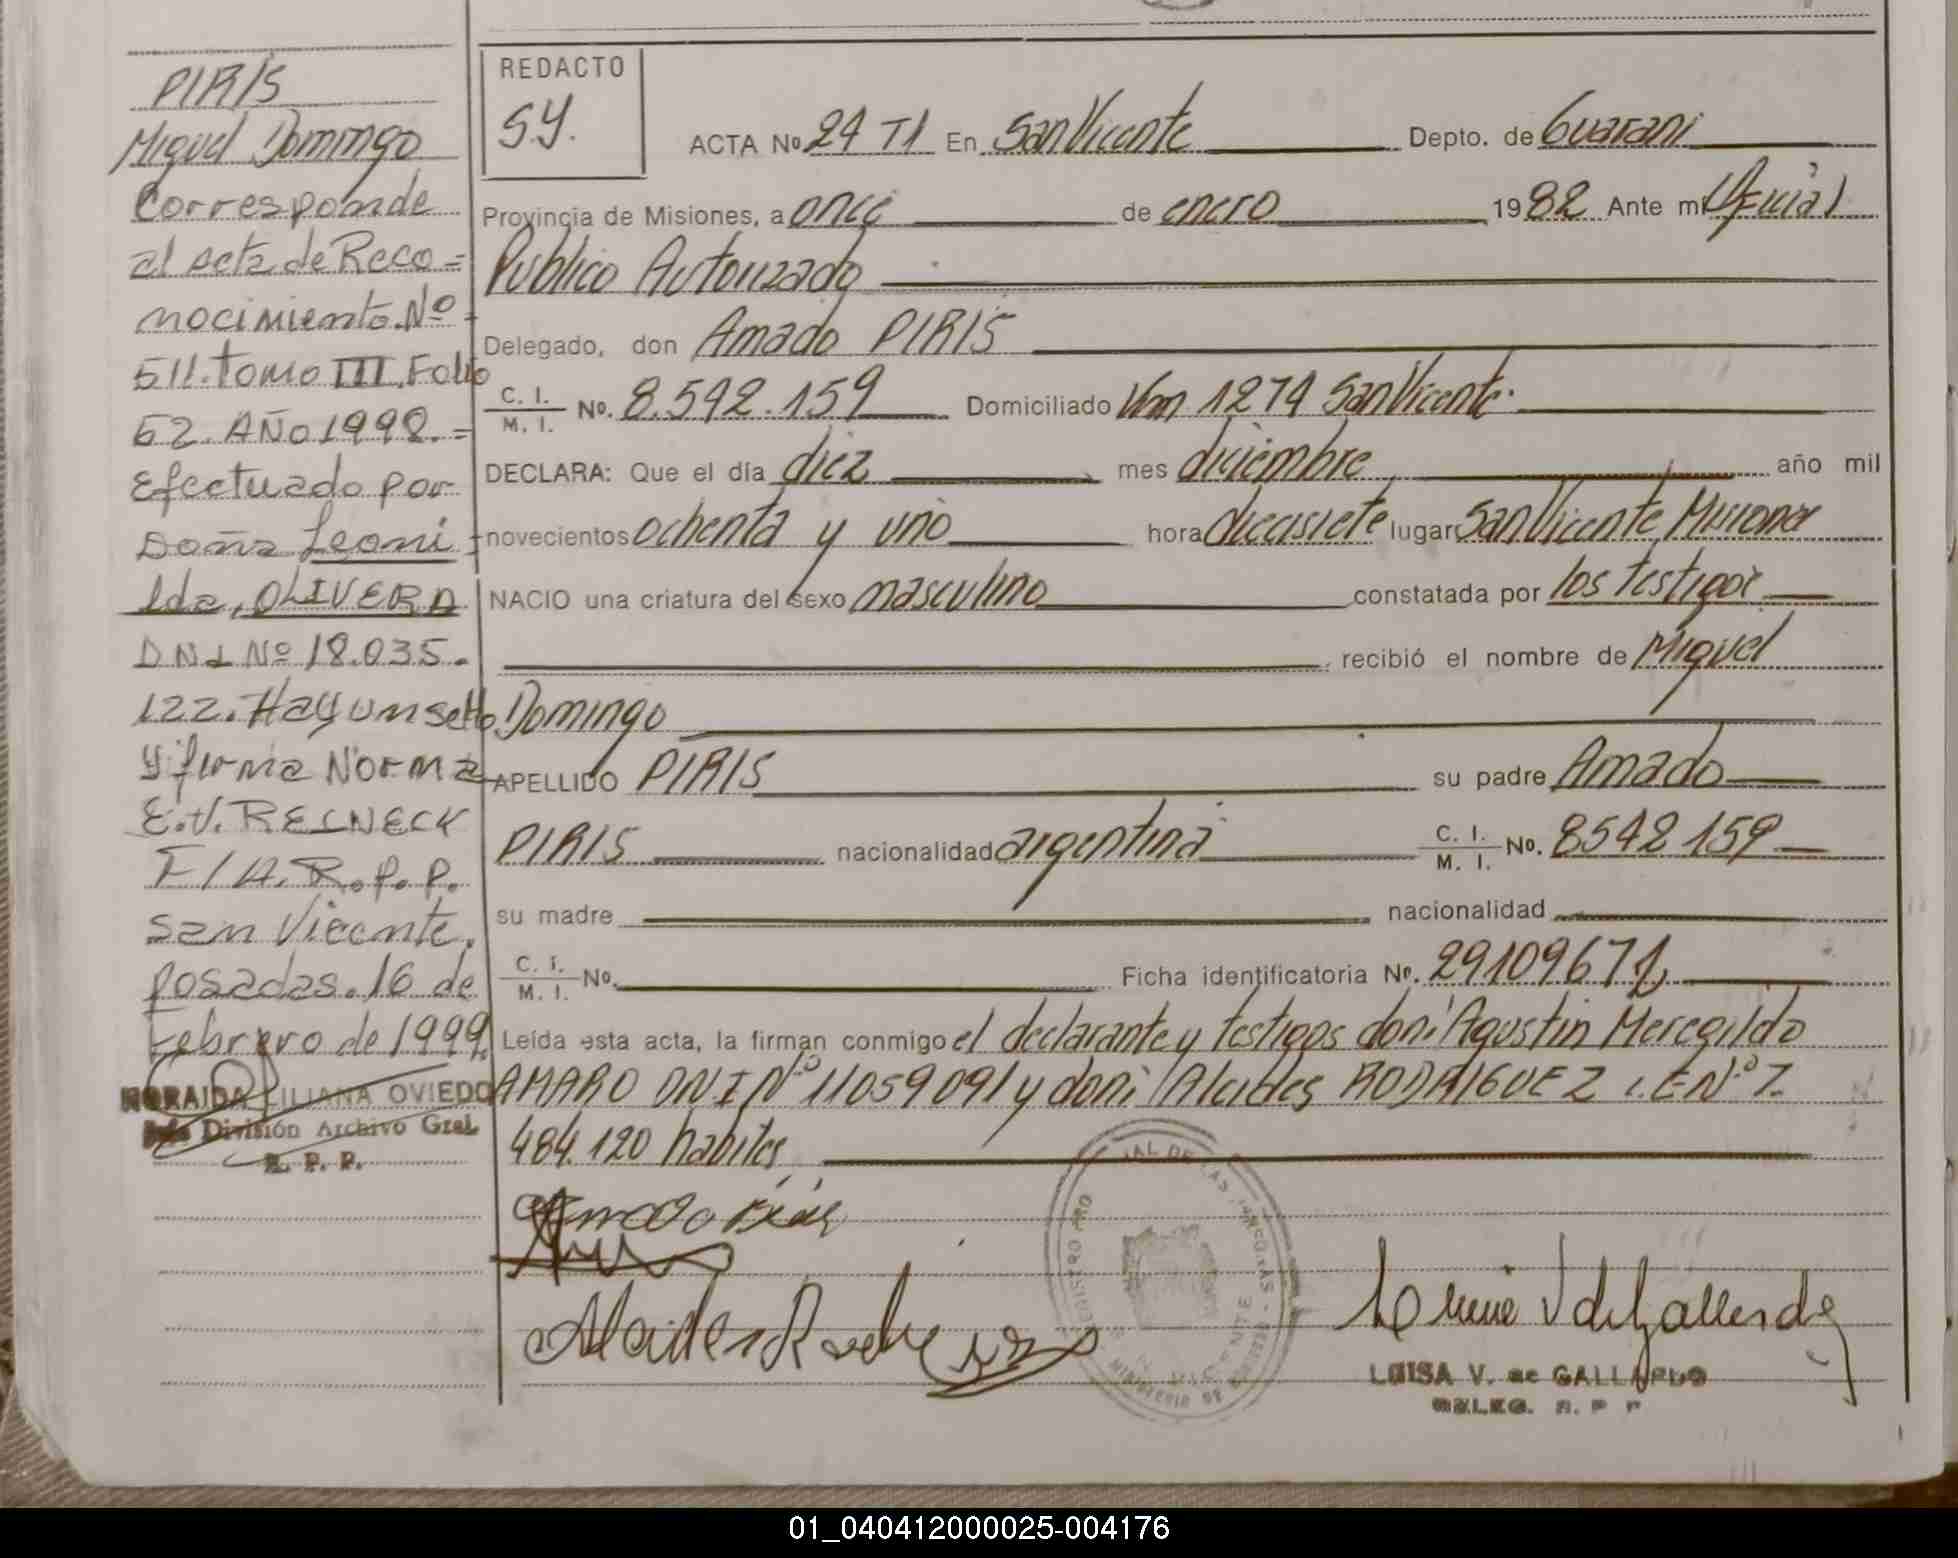 PIRIS
Miguel Domingo
Corresponde
al acta de Reco=
nocimiento.Nº
511.tomo III.Folio
62. AÑO 1998.=
Efectuado por
Doña Leoni
lda, OLIVERA
DNI Nº 18.035.
122. Hay un sello
y firma Norma
E.V. REINECK
F/A. R.P.P.
San Vicente.
Posadas. 16 de
Febrero de 1999.
NORAIDA LILIANA OVIEDO
Jefe División Archivo Gral.
R. P. P.
REDACTO
S.Y.
ACTA Nº 24 T1 En San Vicente Depto. de Guarani
Provincia de Misiones, a once de enero 1982 Ante mi (Oficial
Publico Autorizado
Delegado, don Amado PIRIS
C. I. / M. I. Nº. 8.542.159 Domiciliado Km 1274 San Vicente.
DECLARA: Que el día diez mes diciembre año mil
novecientos ochenta y uno hora diecisiete lugar San Vicente Misiones
NACIO una criatura del sexo masculino constatada por los testigos
recibió el nombre de Miguel
Domingo
APELLIDO PIRIS su padre Amado
PIRIS nacionalidad argentina C. I. / M. I. Nº. 8542159
su madre nacionalidad
C. I. / M. I. Nº. Ficha identificatoria Nº. 29109671
Leída esta acta, la firman conmigo el declarante y testigos don: Agustin Meregildo
AMARO DNI Nº 11059091 y don: Alcides RODRIGUEZ L.E Nº 7.
484.120 habiles
LUISA V. de GALLARDO
DELEG. R. P. P.
01_040412000025-004176